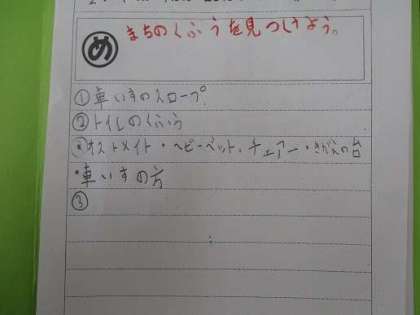 め まちのくふうを見つけよう。
①車いすのスロープ
②トイレのくふう
オストメイト・ベビーベット、チェアー・きがえの台
・車いすの方
③